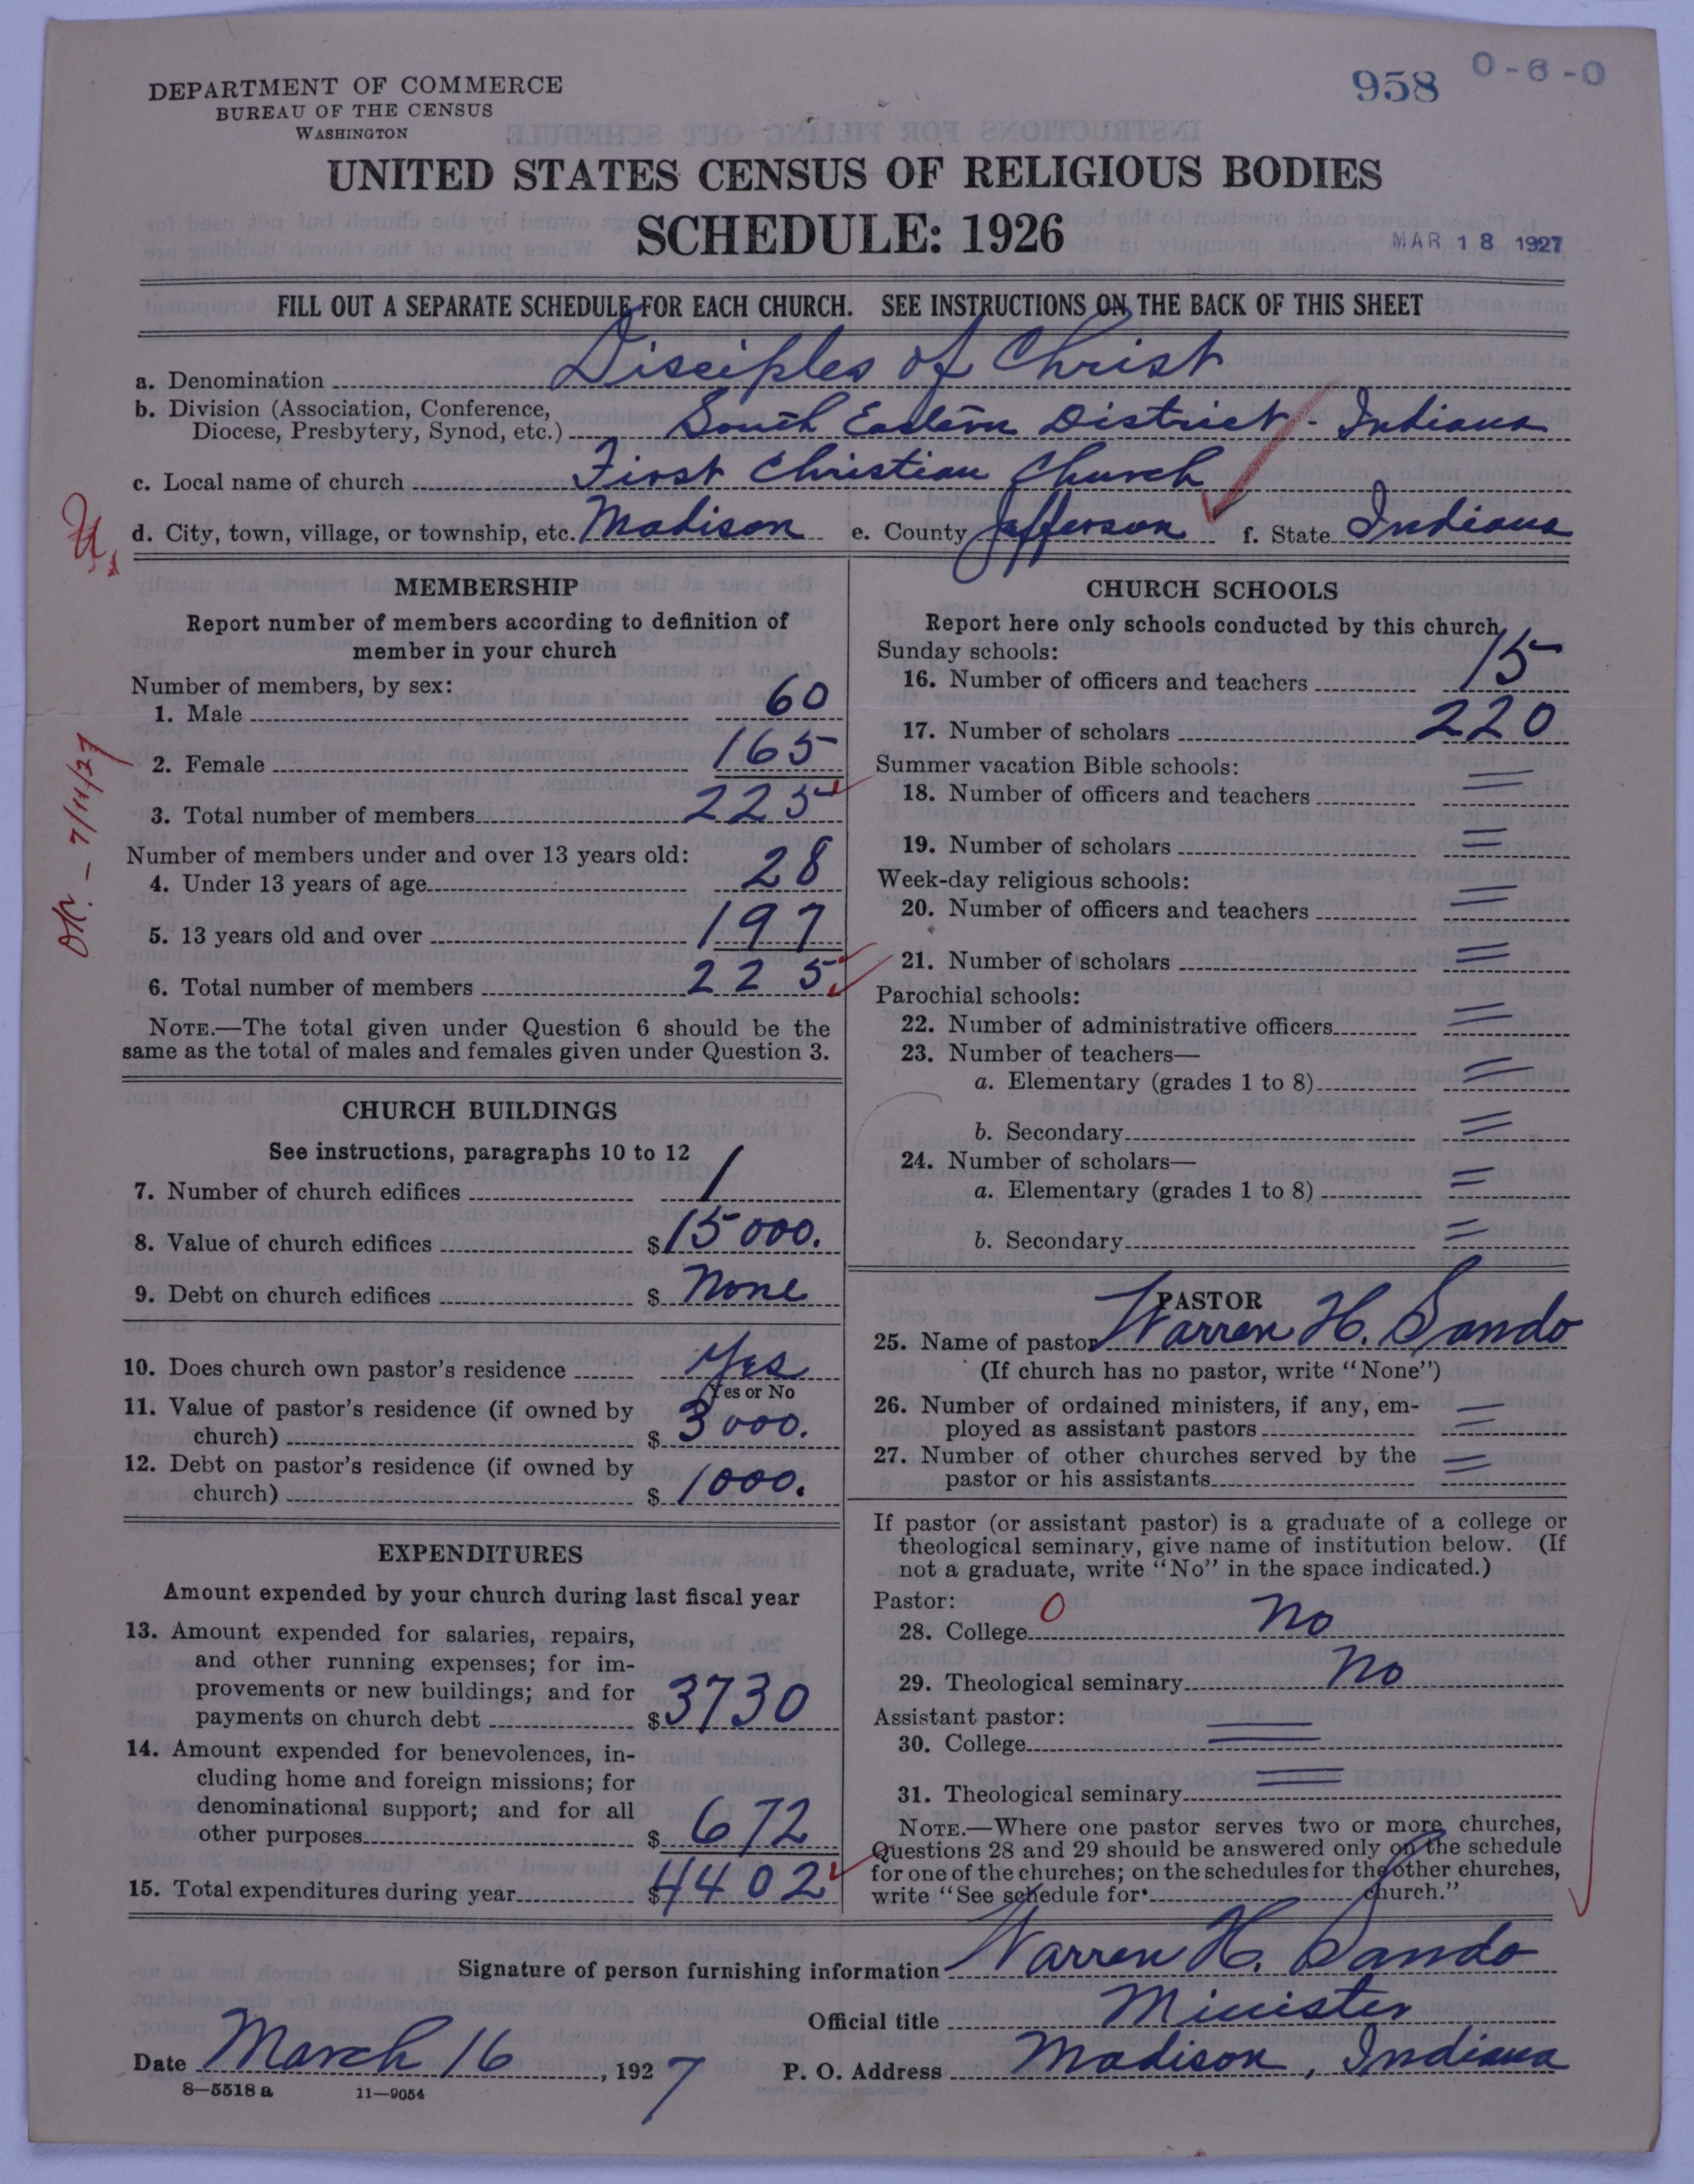 DEPARTMENT OF COMMERCE
BUREAU OF THE CENSUS
WASHINGTON
958 0-6-0
UNITED STATES CENSUS OF RELIGIOUS BODIES
SCHEDULE: 1926
MAR 18 1927
FILL OUT A SEPARATE SCHEDULE FOR EACH CHURCH. SEE INSTRUCTIONS ON THE BACK OF THIS SHEET
a. Denomination Disciples of Christ
b. Division (Association, Conference,
Diocese, Presbytery, Synod, etc.) South Eastern District - Indiana
c. Local name of church First Christian Church
d. City, town, village, or township, etc. Madison e. County Jefferson f. State Indiana
U.
OK. - 7/11/27
MEMBERSHIP
Report number of members according to definition of
member in your church
Number of members, by sex:
1. Male 60
2. Female 165
3. Total number of members 225
Number of members under and over 13 years old:
4. Under 13 years of age 28
5. 13 years old and over 197
6. Total number of members 225
NOTE.—The total given under Question 6 should be the
same as the total of males and females given under Question 3.
CHURCH BUILDINGS
See instructions, paragraphs 10 to 12
7. Number of church edifices 1
8. Value of church edifices $15000.
9. Debt on church edifices $ None
10. Does church own pastor's residence Yes
Yes or No
11. Value of pastor's residence (if owned by
church) $ 3000.
12. Debt on pastor's residence (if owned by
church) $ 1000.
EXPENDITURES
Amount expended by your church during last fiscal year
13. Amount expended for salaries, repairs,
and other running expenses; for im-
provements or new buildings; and for
payments on church debt $3730
14. Amount expended for benevolences, in-
cluding home and foreign missions; for
denominational support; and for all
other purposes $ 672
15. Total expenditures during year $4402
CHURCH SCHOOLS
Report here only schools conducted by this church
Sunday schools:
16. Number of officers and teachers 15
17. Number of scholars 220
Summer vacation Bible schools:
18. Number of officers and teachers
19. Number of scholars
Week-day religious schools:
20. Number of officers and teachers
21. Number of scholars
Parochial schools:
22. Number of administrative officers
23. Number of teachers—
a. Elementary (grades 1 to 8)
b. Secondary
24. Number of scholars—
a. Elementary (grades 1 to 8)
b. Secondary
PASTOR
25. Name of pastor Warren H. Sando
(If church has no pastor, write "None")
26. Number of ordained ministers, if any, em-
ployed as assistant pastors
27. Number of other churches served by the
pastor or his assistants
If pastor (or assistant pastor) is a graduate of a college or
theological seminary, give name of institution below. (If
not a graduate, write "No" in the space indicated.)
Pastor: 0
28. College No
29. Theological seminary No
Assistant pastor:
30. College
31. Theological seminary
NOTE.—Where one pastor serves two or more churches,
Questions 28 and 29 should be answered only on the schedule
for one of the churches; on the schedules for the other churches,
write "See schedule for church."
Signature of person furnishing information Warren H. Sando
Official title Minister
Date March 16, 1927 P. O. Address Madison, Indiana
8—5518 a 11—9054